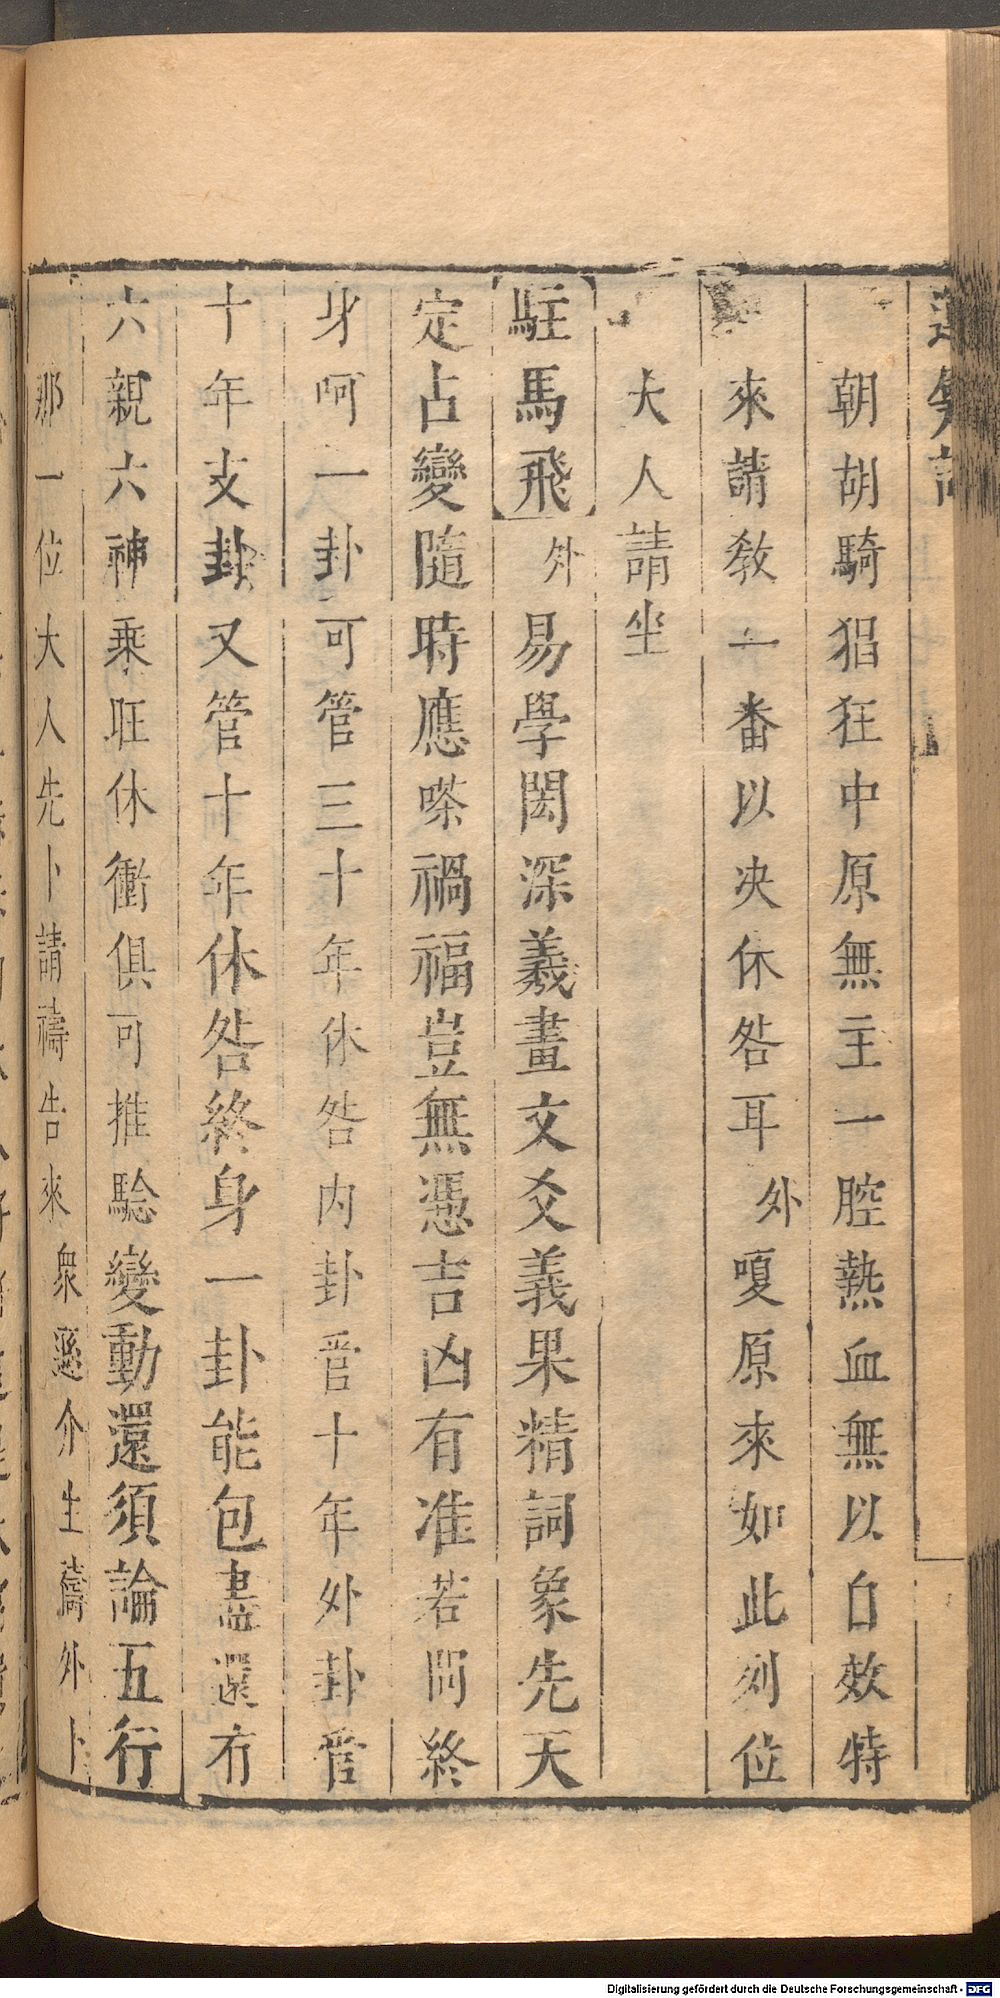 朝胡騎猖狂中原無主一腔熱血無以自效特
來請教一番以决休咎耳外嗄原來如此列位
大人請坐
駐馬飛外易學閎深羲畫文爻義果精詞象先天
定占變隨時應嗏禍福豈無憑吉凶有准若問終
身呵一卦可管三十年休咎内卦管十年外卦管
十年支卦又管十年休咎終身一卦能包盡還有
六親六神乘旺休衝俱可推驗變動還須論五行
那一位大人先卜請禱告來衆遜介生禱外卜
Digitalisierung gefördert durch die Deutsche Forschungsgemeinschaft - DFG